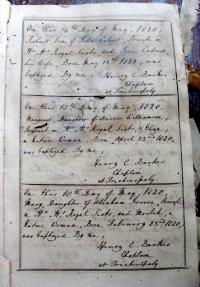 On this 14th Day of May, 1820,
Son of John Calvert, Private
Hs Ms Royal Scots and Jane Calvert
his wife, Born May 13th 1820, was
Baptized By me, Henry C. Bankes
Chaplain
at Trichinopoly
On this 10th Day of May, 1820,
Margaret, Daughter of
Sergeant in Hs Ms Royal Scots, &
a Native Woman, Born April 23rd 1820,
was Baptized By me,
Henry C. Bankes
Chaplain
at Trichinopoly
On this 10th Day of May, 1820,
Mary, Daughter of Abraham
in Hs Ms Royal Scots, and a
Native Woman, Born February 25th 1820,
was Baptized By me,
Henry C. Bankes
Chaplain
at Trichinopoly